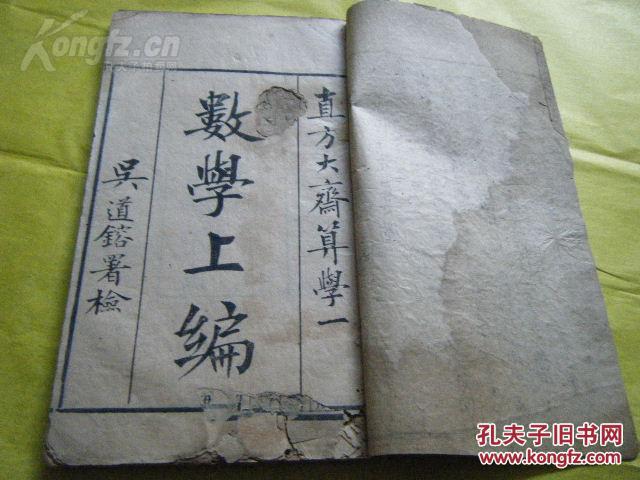 直方大齋算學一
數學上編
吳道鎔署檢
Kongfz.cn
孔夫子旧书网
www.kongfz.com